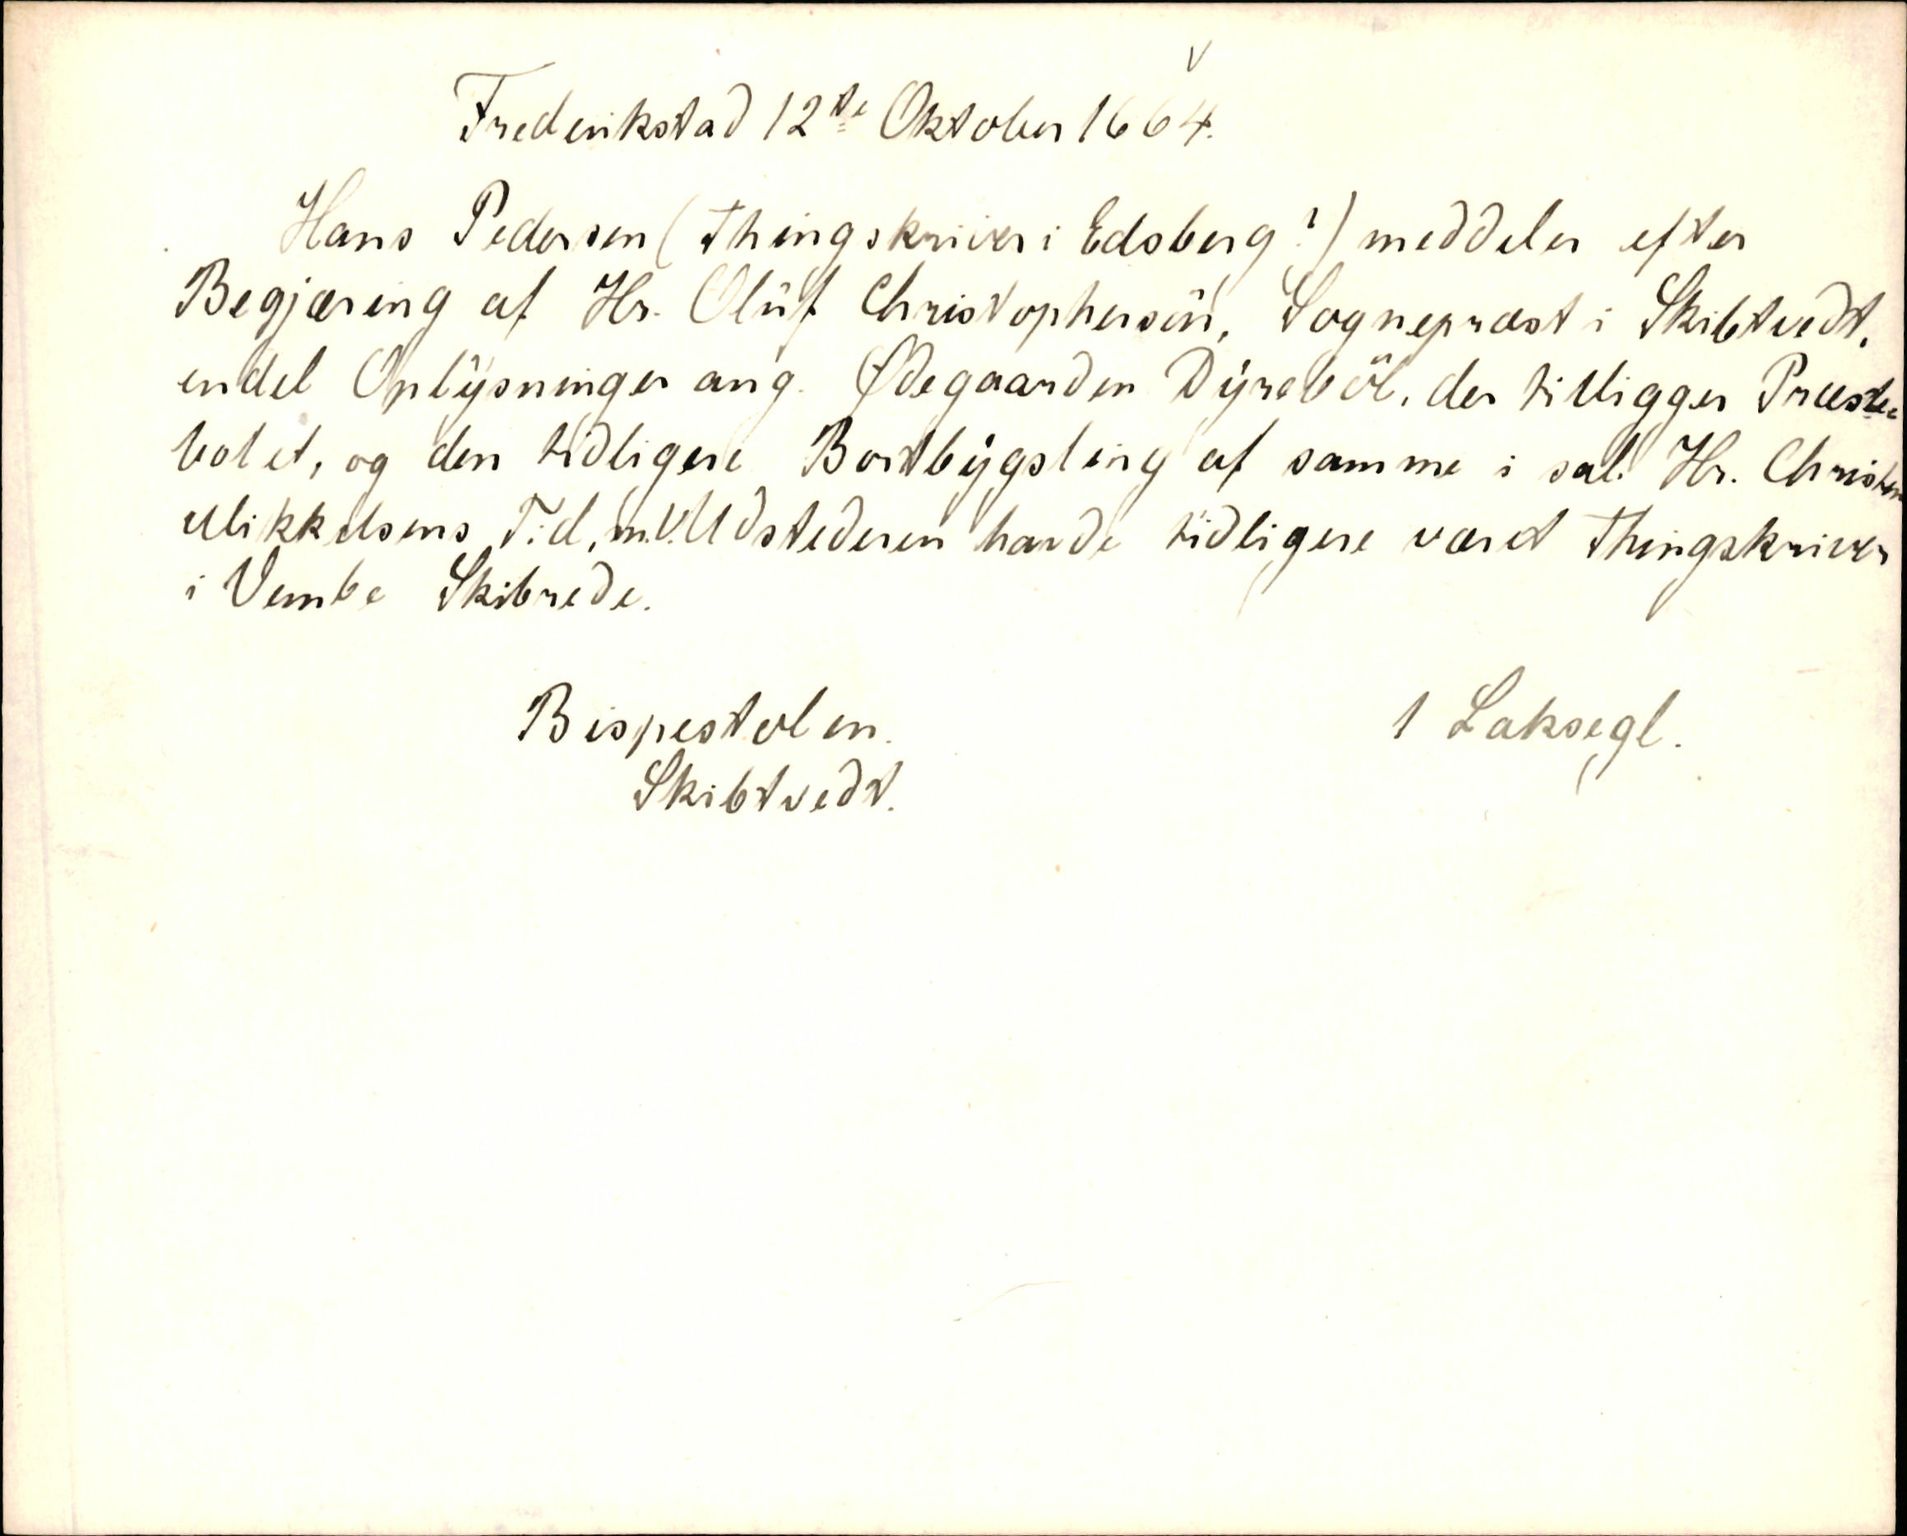 Frederikstad 12te Oktober 1664.
Hans Pedersen (Thingskriver i Edsberg?) meddeler efter
Begjæring af Hr. Oluf Christophersen, Sognepræst i Skibtvedt,
endel Oplysninger ang. Ødegaarden Dyreböl, der tilligger Præste-
bolet, og den tidligere Bortbygsling af samme i sal. Hr. Christen
Mikkelsens Tid, m.V. Udstederen havde tidligere været Thingskriver
i Vembe Skibrede.
Bispestolen. 1 Laksegl.
Skibtvedt.